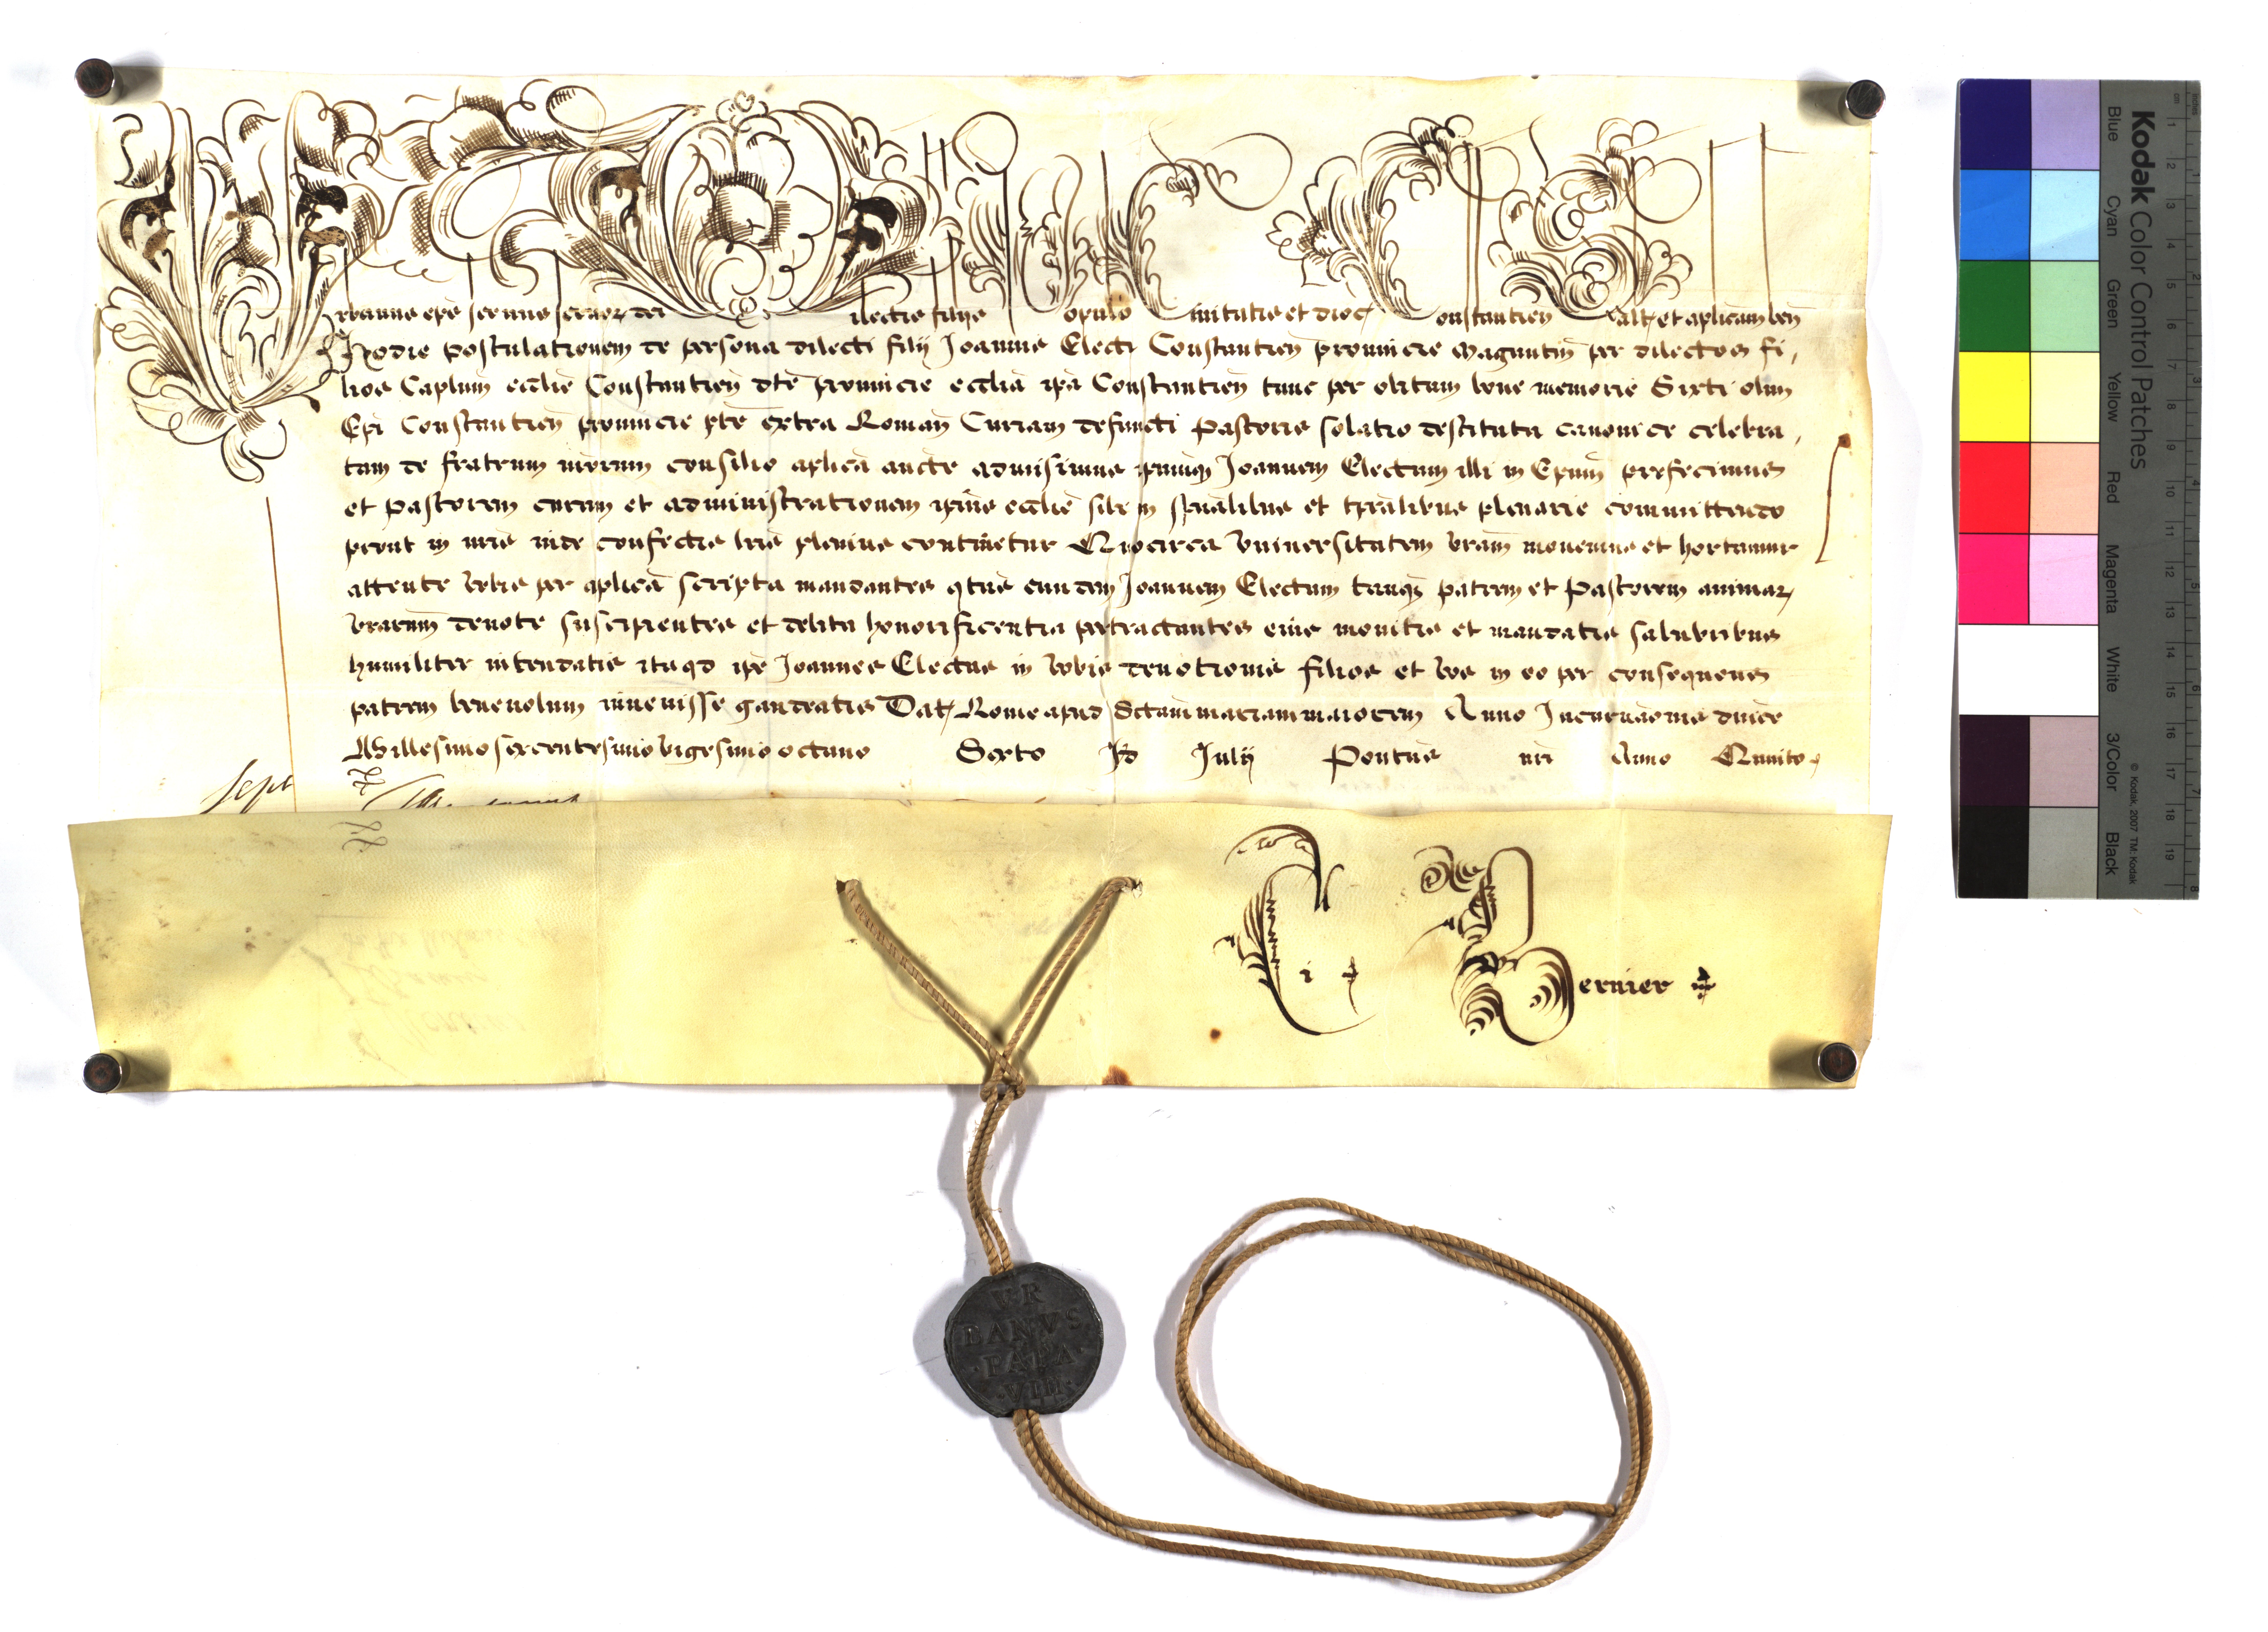 Urbanus eps seruus seruor dei Dilectis filijs Populo Ciuitatis et dioc Constantien Saltem et aplicam ben
Hodie postulationem de persona dilecti filij Joannis Electi Constantien prouincie Maguntin per dilectos fi,
lios Caplum ecclie Constantien dte prouincie ecclia ipa Constantien tunc per obitum bone memorie Sixti olim
Epi Constantien prouincie pte extra Roman Curiam defuncti Pastoris solatio destituta canonice celebra,
tam de fratrum nrorum consilio aplica aucte admisimus ipmuq Joannem Electum illi in Epum prefecimus
et Pastorem curam et administrationem ipius ecclie sibi in spualibus et tpralibus plenarie committendo
prout in nris inde confectis lris plenius continetur Quocirca Vniuersitatem vram monemus et hortamur
attente vobis per aplica scripta mandantes qtus eundem Joannem Electum tanq patrem et Pastorem animar
vrarum deuote suscipientes et debita honorificentia pertractantes eius monitis et mandatis salubribus
humiliter intendatis itaqd ipe Joannes Electus in vobis deuotionis filios et vos in eo per consequens
patrem beneuolum inuenisse gaudeatis Dat Rome apud Sctam mariam maiorem Anno Incarnaonis dnice
Millesimo sexcentesimo vigesimo octauo Sexto Id Julij Pontus nri Anno Quinto
Sept
Bernier
VR
BANVS
·PAPA·
·VIII·
Kodak Color Control Patches
Blue Cyan Green Yellow Red Magenta White 3/Color Black
© Kodak, 2007 TM: Kodak
cm 1 2 3 4 5 6 7 8 9 10 11 12 13 14 15 16 17 18 19
inches 1 2 3 4 5 6 7 8